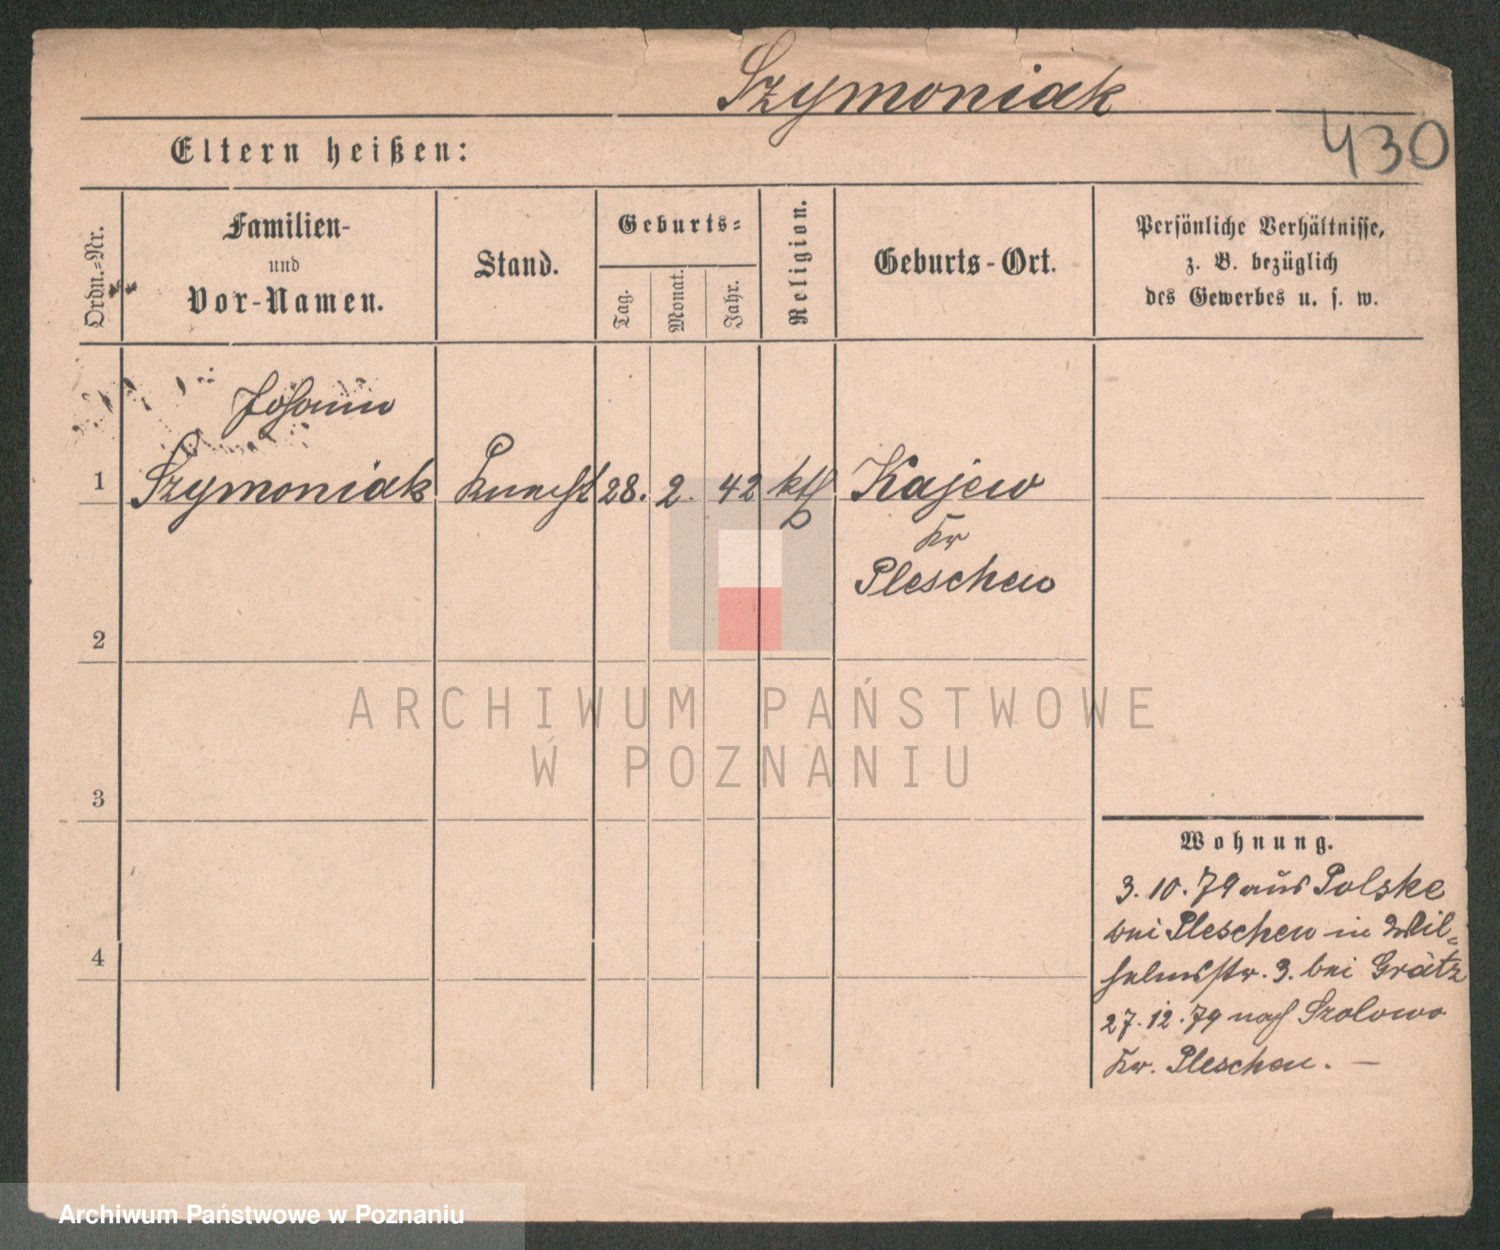 Szymoniak
430
Eltern heißen:
Ordn.-Nr.
Familien-
und
Vor-Namen.
Stand.
Geburts-
Tag.
Monat.
Jahr.
Religion.
Geburts-Ort.
Persönliche Verhältnisse,
z. B. bezüglich
des Gewerbes u. s. w.
Johann
1 Szymoniak Knecht 28. 2. 42 kth Kajew
Kr
Pleschen
2
ARCHIWUM PAŃSTWOWE
W POZNANIU
3
Wohnung.
3. 10. 79 aus Polske
bei Pleschen in Wil-
helmsstr. 3. bei Grätz
4
27. 12. 79 nach Szolowo
Kr. Pleschen. —
Archiwum Państwowe w Poznaniu